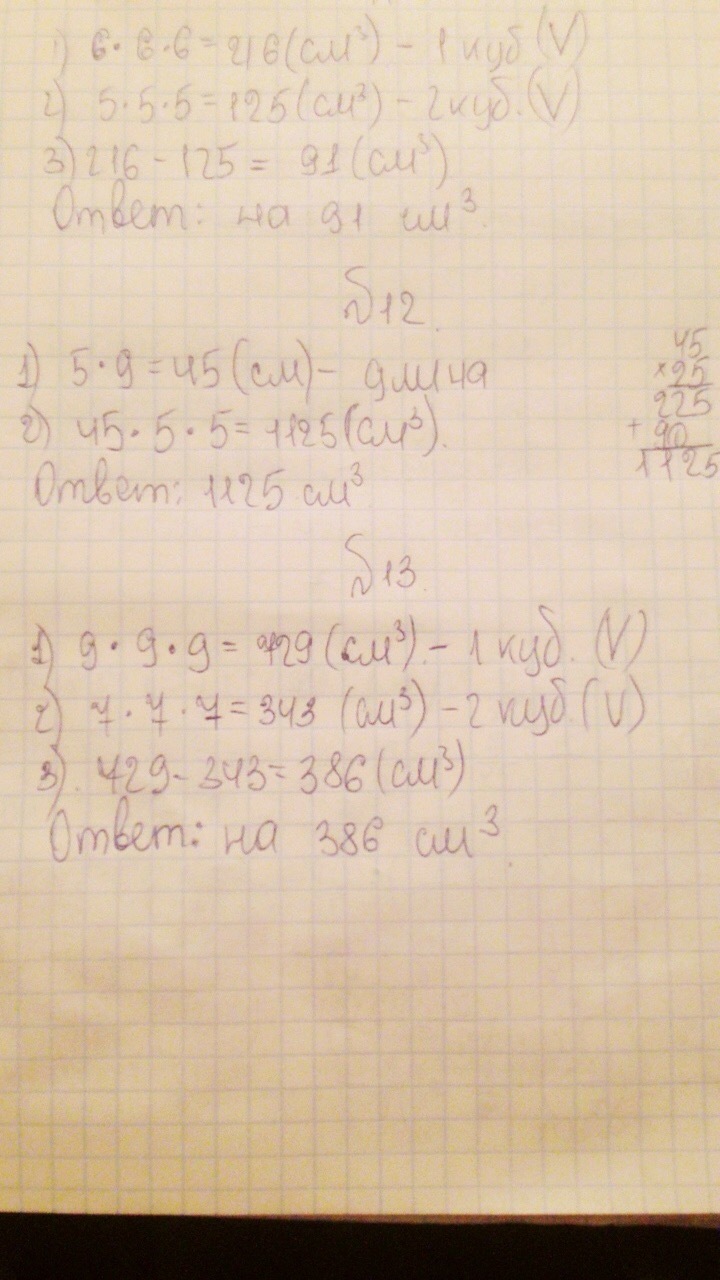 1) 6·6·6=216(см³) – 1 куб (V)
2) 5·5·5=125(см³) – 2 куб. (V)
3) 216-125= 91(см³)
Ответ: на 91 см³.
№12.
1) 5·9=45(см)– длина
2) 45·5·5=1125(см³).
Ответ: 1125 см³
45
×25
225
+ 90
1125
№13.
1) 9·9·9=729(см³).– 1 куб. (V)
2) 7·7·7=343 (см³) –2 куб (V)
3). 729-343=386(см³)
Ответ: на 386 см³.